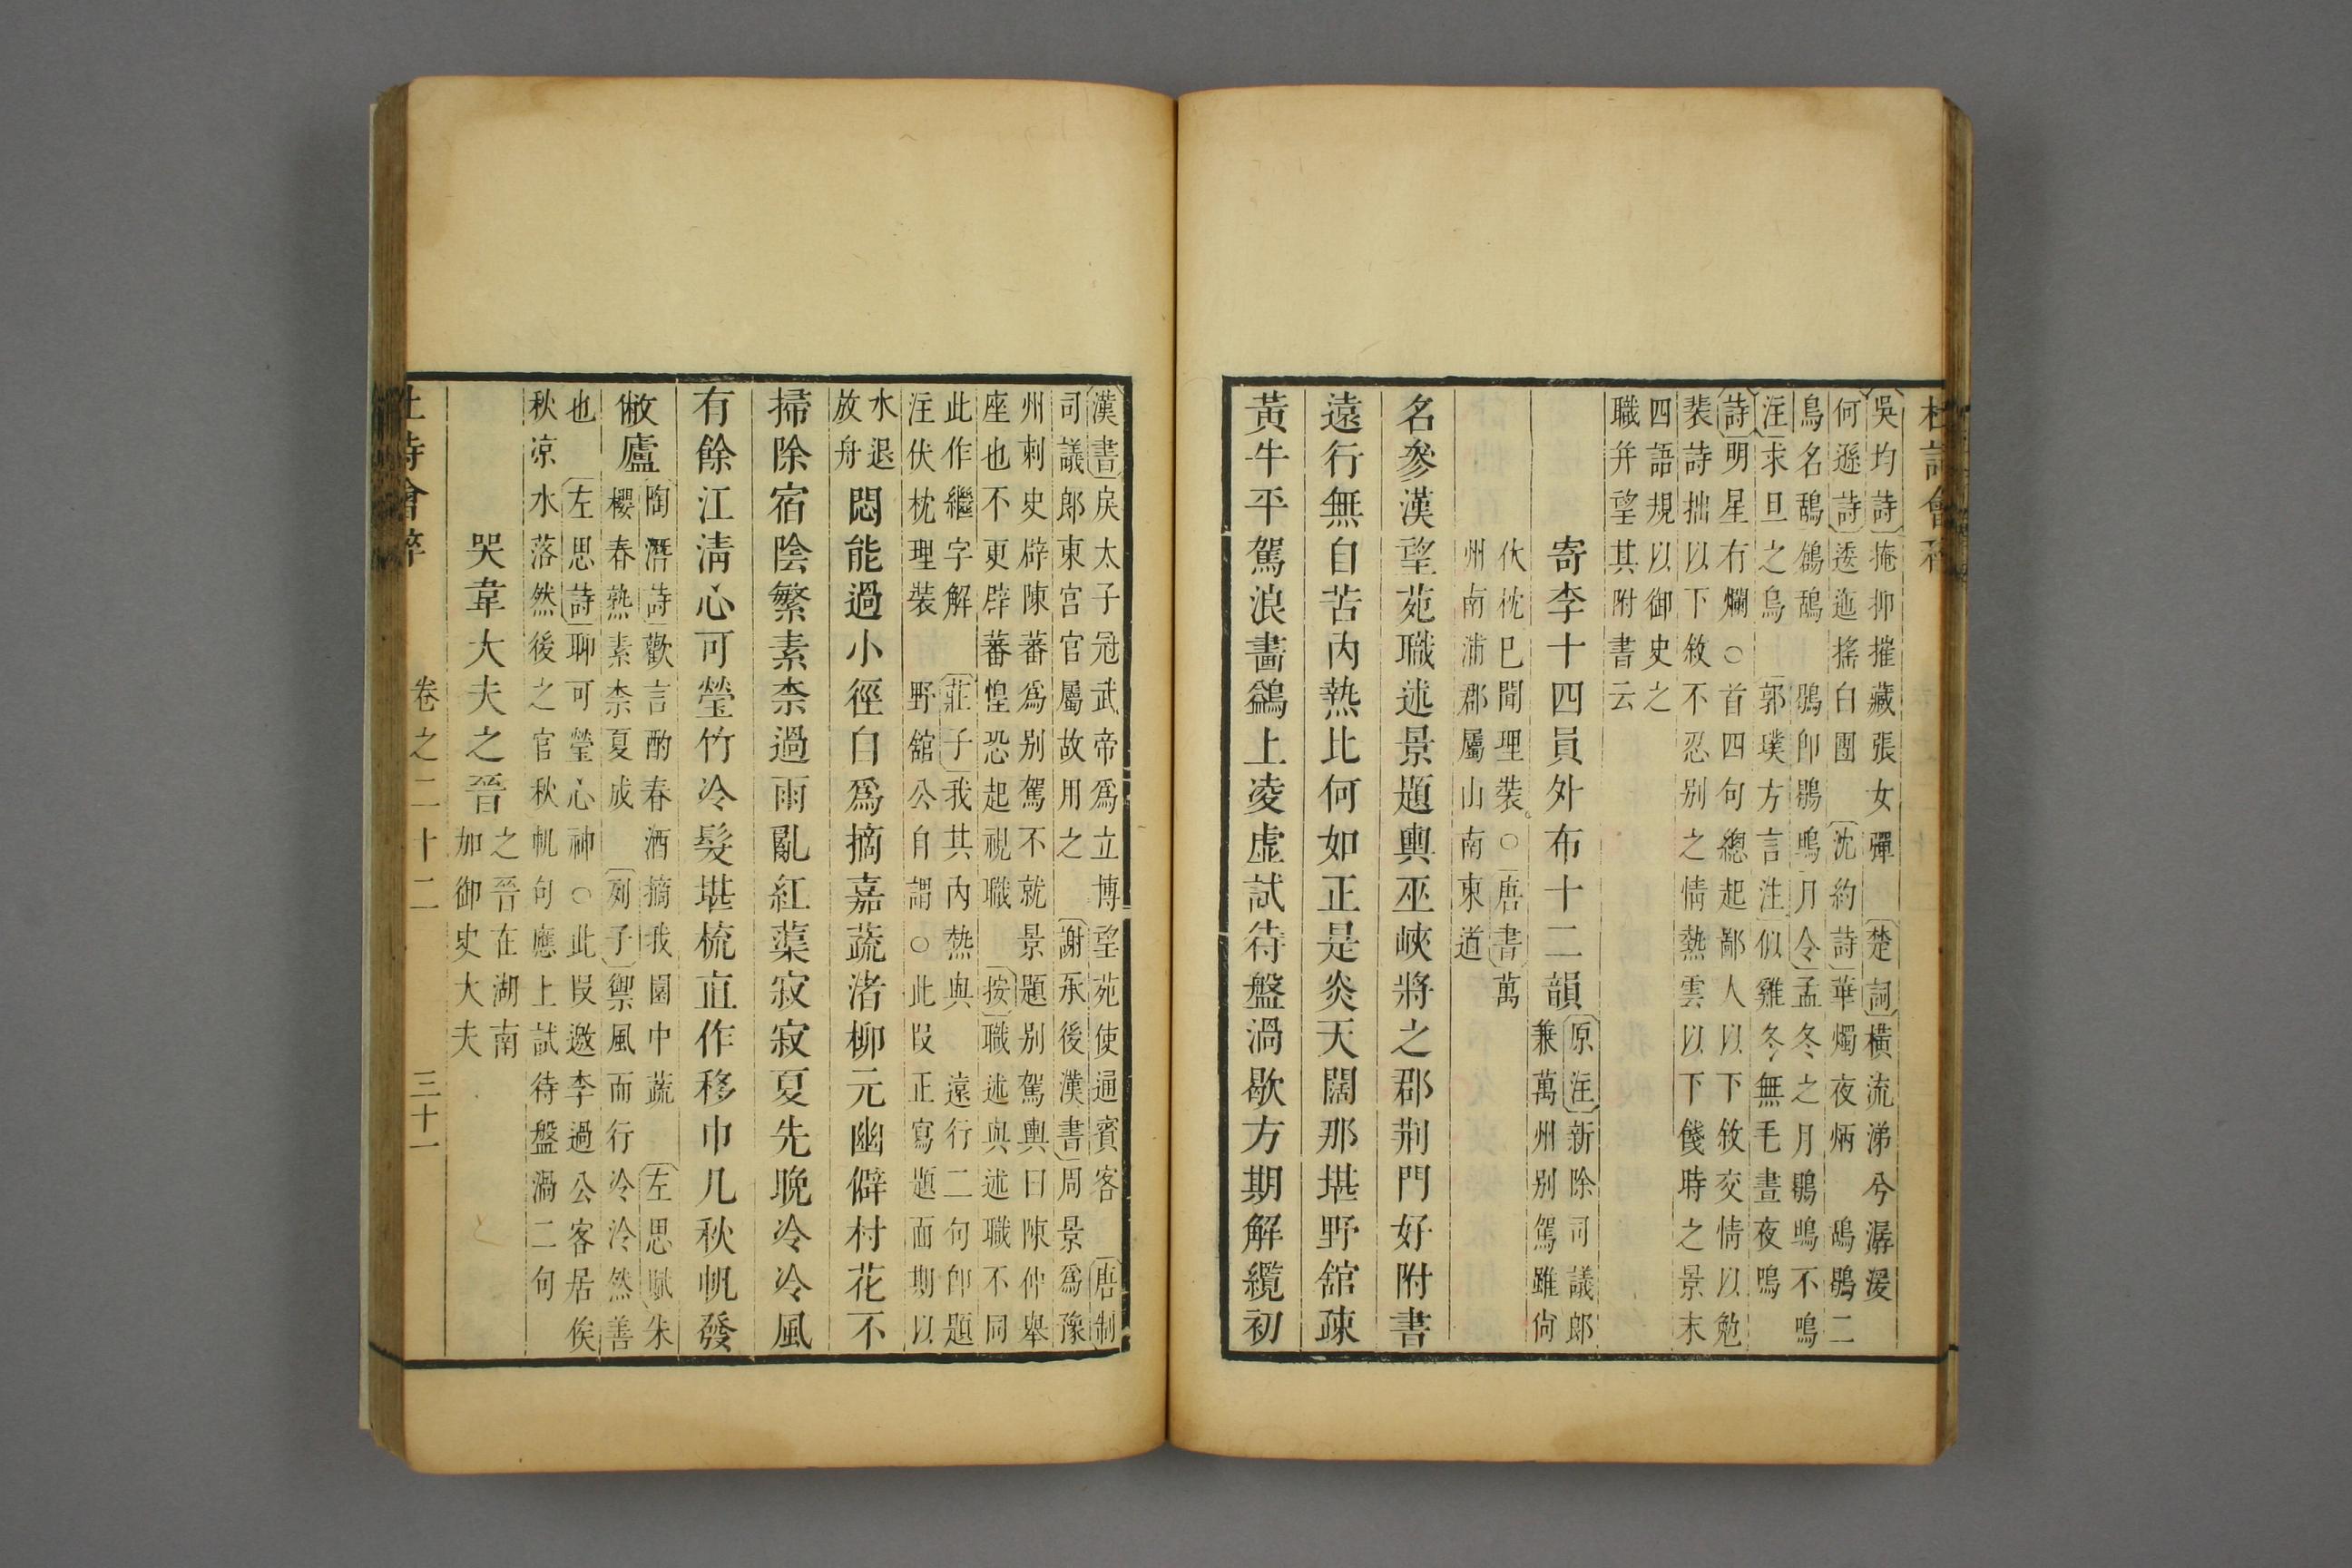 杜詩會稡
吳均詩掩抑摧藏張女彈　楚詞橫流涕兮潺湲
何遜詩逶迤搖白團　沈約詩華燭夜炳　鴰鶡二
鳥名鴰鶬鴰　鶡卽鶡鳴月令孟冬之月鶡鳴不鳴
注求旦之鳥　郭璞方言注似雞冬無毛晝夜鳴
詩明星有爛○首四句總起鄙人以下敘交情以勉
裴詩拙以下敘不忍別之情熱雲以下餞時之景末
四語規以御史之
職并望其附書云
寄李十四員外布十二韻
原注新除司議郎
兼萬州別駕雖尙
伏枕巳聞理裝○唐書萬
州南浦郡屬山南東道
名參漢望苑職述景題輿巫峽將之郡荆門好附書
遠行無自苦內熱比何如正是炎天闊那堪野舘疎
黃牛平駕浪畵鷁上凌虛試待盤渦歇方期解纜初
漢書戾太子冠武帝爲立博望苑使通賓客　唐制
司議郎東宮官屬故用之　謝承後漢書周景爲豫
州刺史辟陳蕃爲別駕不就景題別駕輿曰陳仲舉
座也不更辟蕃惶恐起視職　按職述與述職不同
此作繼字解　莊子我其內熱與　遠行二句卽題
注伏枕理裝　野舘公自謂○此段正寫題面期以
水退
放舟
悶能過小徑自爲摘嘉蔬渚柳元幽僻村花不
掃除宿陰繁素柰過雨亂紅蕖寂寂夏先晚泠泠風
有餘江淸心可瑩竹冷髮堪梳直作移巾几秋帆發
敝廬
陶潛詩歡言酌春酒摘我園中蔬　左思賦朱
櫻春熟素柰夏成　列子禦風而行泠泠然善
也　左思詩聊可瑩心神○此段邀李過公客居俟
秋凉水落然後之官秋帆句應上試待盤渦二句
哭韋大夫之晉
之晉在湖南
加御史大夫
杜詩會稡　卷之二十二　三十一